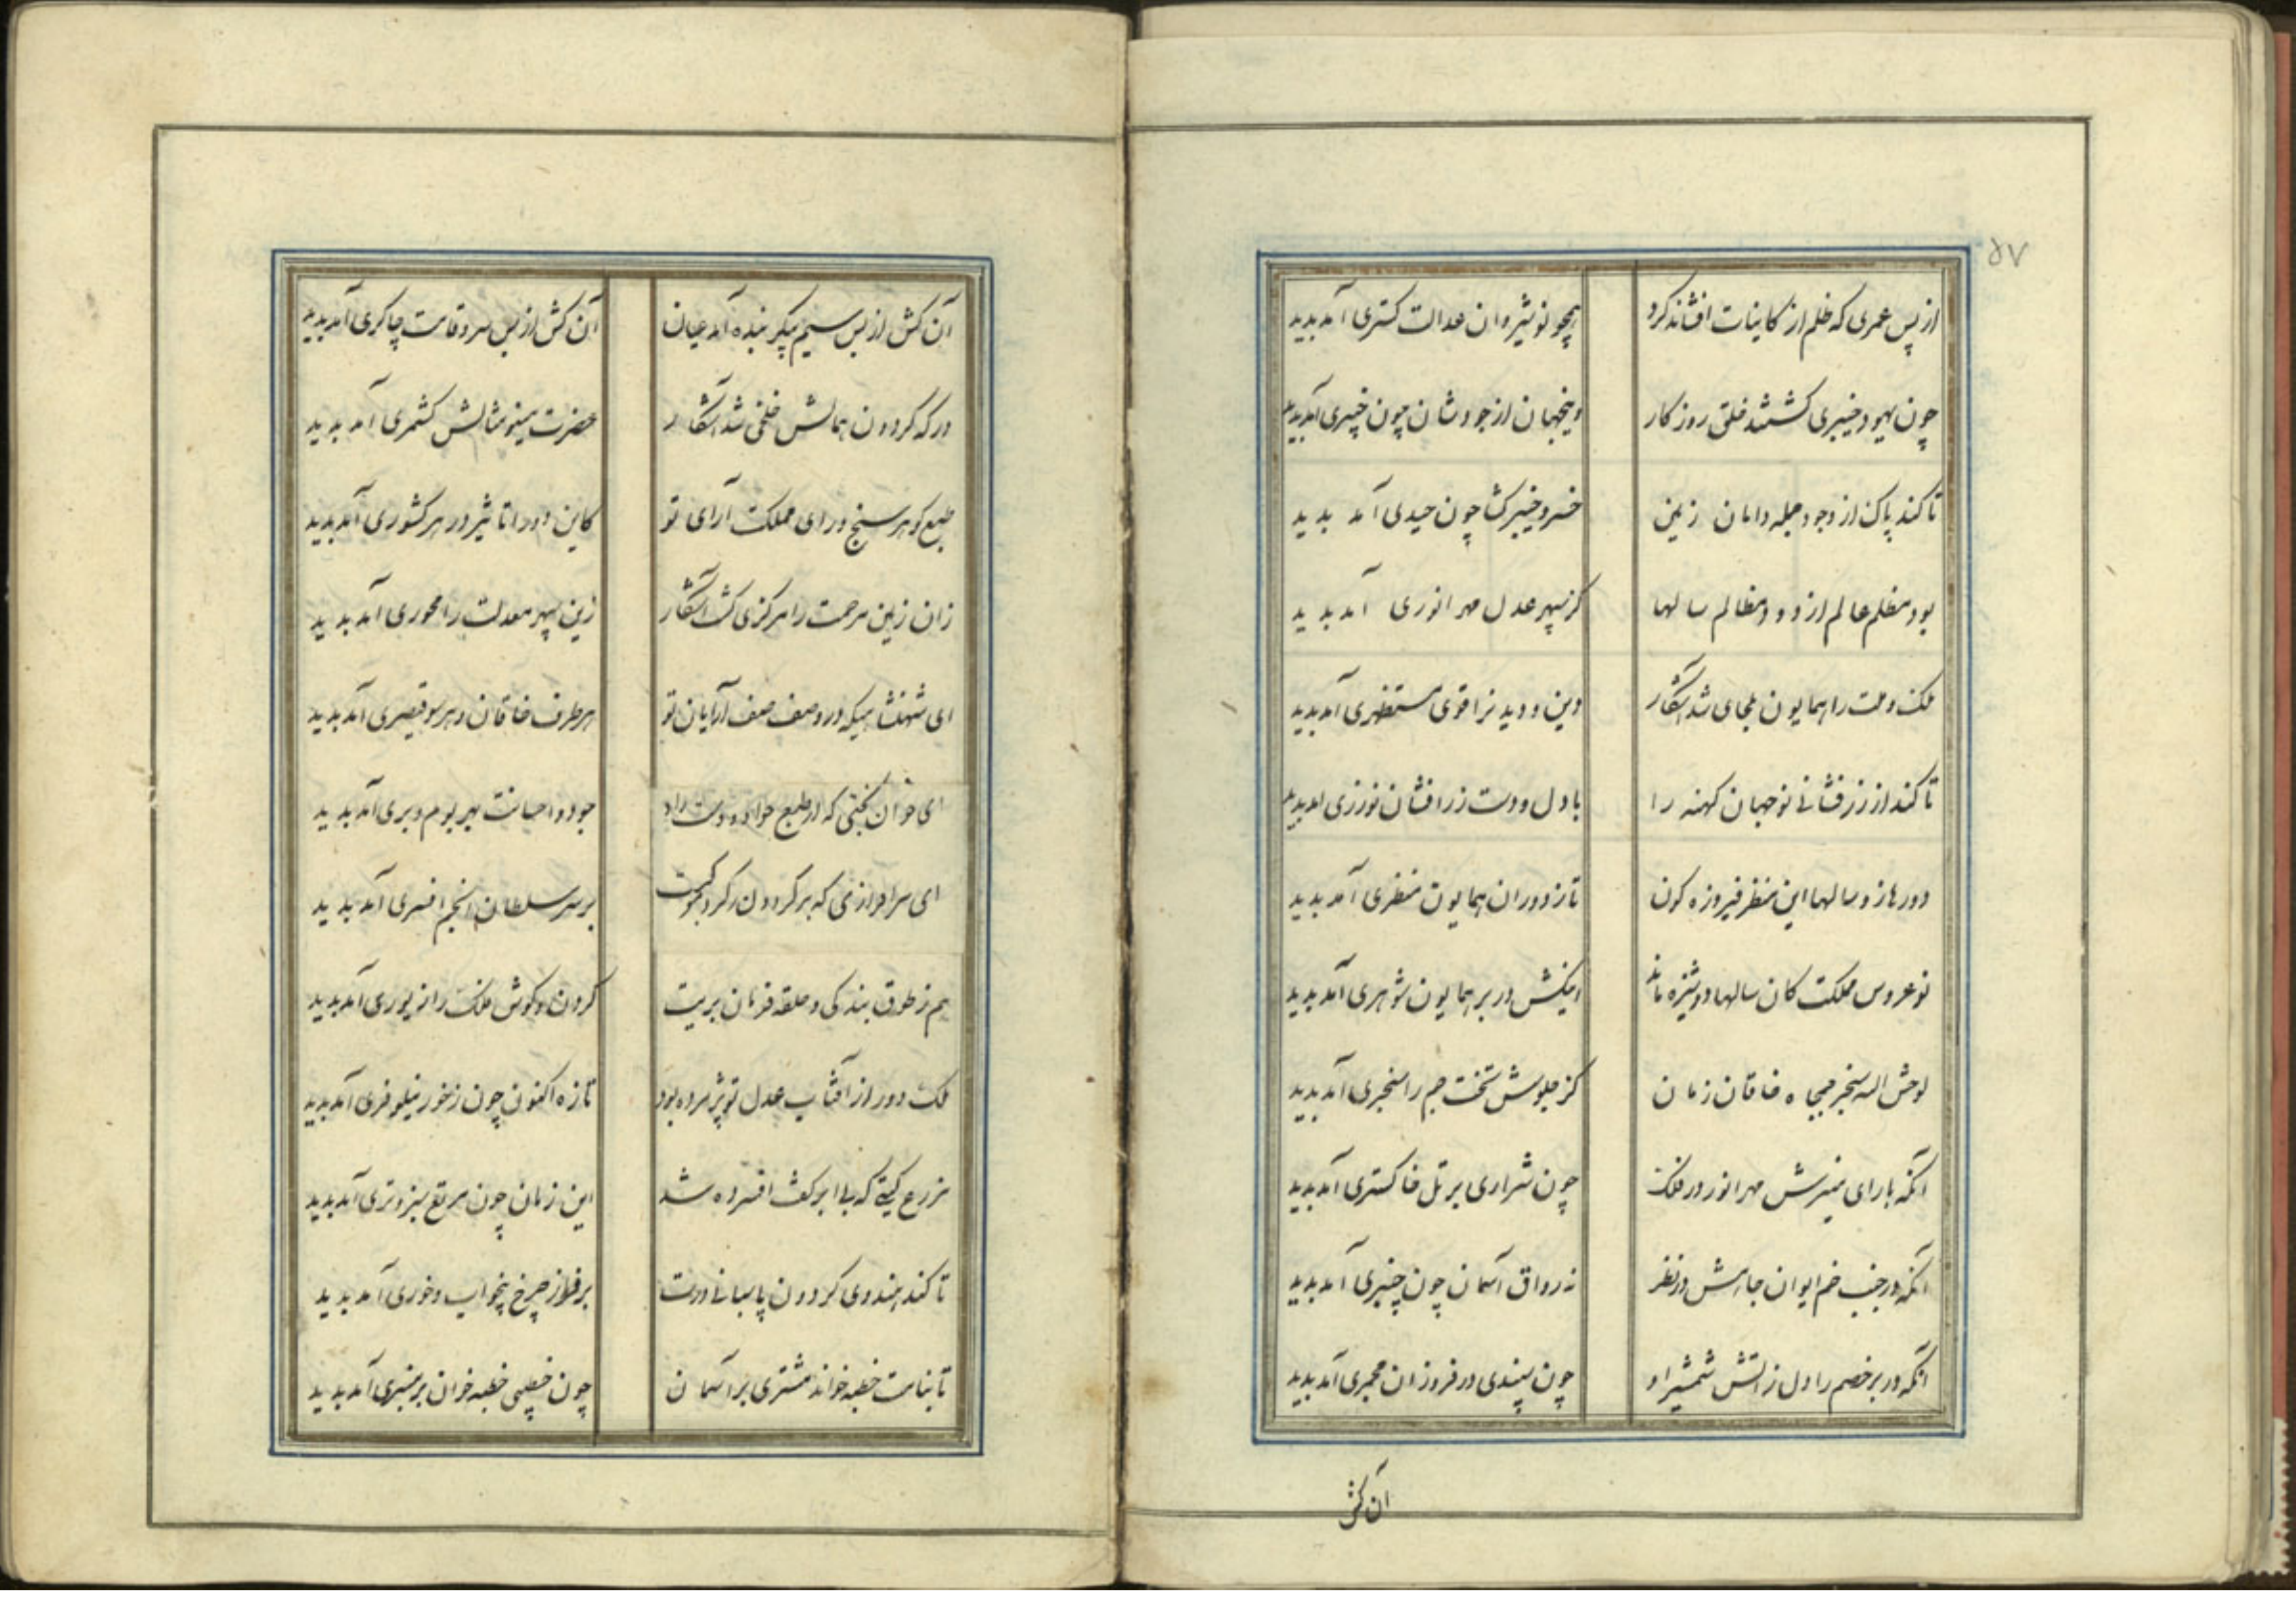 ۵۷
از پس عمری که ظلم از کاینات افشاند کرد همچو نوشیروان عدالت کستری آمد پدید
چون یهود خیبری کشتند خلق روزکار وینجهان از جودشان چون خیبری آمد پدید
تا کند پاک از وجود جمله دامان زمین خسرو خیبرکشا چون حیدری آمد پدید
بود مظلم عالم از دود مظالم سالها کز سپهر عدل مهر انوری آمد پدید
ملک و ملت را همایون ملجای شد آشکار دین و
تا کند از زرفشانی نو جهان کهنه را با دل و دست زرافشان نوذری آمد پدید
دورها زد سالها این منظر فیروزه کون تا ز دوران همایون منظری آمد پدید
نوعروس مملکت کان سالها دوشیزه ماند اینکش در بر همایون شوهری آمد پدید
لوحش الله سنجر جمجاه خاقان زمان کز جلوسش تخت جم را سنجری آمد پدید
آنکه با رای منیرش مهر انور در فلک چون شراری بر تل خاکستری آمد پدید
آنکه در جنب خم ایوان جاهش در نظر نه رواق آسمان چون چنبری آمد پدید
آنکه در بر خصم را دل ز آتش شمشیر او چون سپندی در فروزان مجمری آمد پدید
آن کش
آن کش از بس سیم پیکر بنده آمد عیان آن کش از بس سرو قامت چاکری آمد پدید
درکه کردون همالش خلخی شد آشکار حضرت مینو مثالش کشمری آمد پدید
طبع کوهر سنج و رای مملکت آرای تو کاین دو را تاثیر در هر کشوری آمد پدید
زان زمین مرحمت را مرکزی کشت آشکار زین سپهر معدلت را محوری آمد پدید
ای شهنشاهیکه در وصف صف آرایان تو هر طرف خاقان و هر سو قیصری آمد پدید
ای جوان بختی که از طبع جواد و دست راد جود و احسانت بهر بوم و بری آمد پدید
ای سرافرازی که بر کردون ز کرد موکبت بر سر سلطان انجم افسری آمد پدید
هم ز طوق بندکی و حلقه فرمان بریت کردن و کوش فلک را زیوری آمد پدید
ملک دور از آفتاب عدل تو پژمرده بود تازه اکنون چون ز خور نیلوفری آمد پدید
مزرع کیتی که بی ابر کفت افسرده شد این زمان چون مرتع سبز و تری آمد پدید
تا کند هندوی کردون پاسبانی درت بر فراز چرخ بیخواب و خوری آمد پدید
تا بنامت خطبه خواند مشتری بر آسمان چون خطیبی خطبه خوان بر منبری آمد پدید